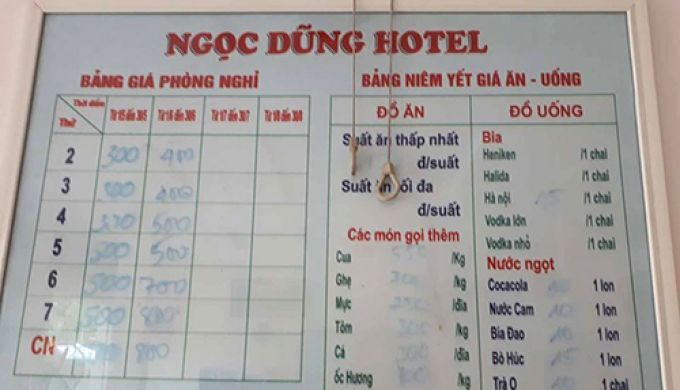 NGỌC DŨNG HOTEL
BẢNG GIÁ PHÒNG NGHỈ
Thời điểm Từ 15 đến 30/5 Từ 1/6 đến 30/6 Từ 1/7 đến 30/7 Từ 1/8 đến 30/8
Thứ
2 300 400
3 400
4 500
5 500
6 500 700
7 500 800
CN 800
BẢNG NIÊM YẾT GIÁ ĂN - UỐNG
ĐỒ ĂN
Suất ăn thấp nhất
đ/suất
Suất ăn tối đa
đ/suất
Các món gọi thêm
Cua /Kg
Ghẹ /kg
Mực /đĩa
Tôm 300 /kg
Cá /đĩa
ốc Hương /kg
ĐỒ UỐNG
Bia
Heniken /1 chai
Halida /1 chai
Hà nội 15 /1 chai
Vodka lớn /1 chai
Vodka nhỏ /1 chai
Nước ngọt
Cocacola 10 1 lon
Nước Cam 10 1 lon
Bia Đao 10 1 lon
Bò Húc 15 1 lon
Trà O 1 chai